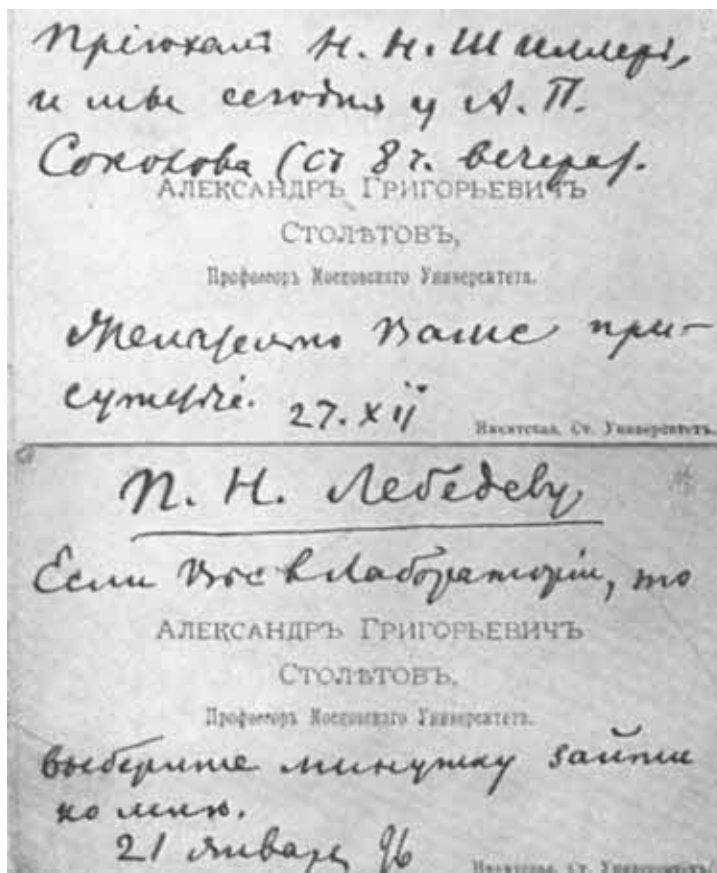 Пріѣхалъ Н. Н. Шиллеръ,
и мы сегодня у А. П.
Соколова (съ 8 ч. вечера).
Александръ Григорьевичъ
Столѣтовъ,
Профессоръ Московскаго Университета.
Желательно Ваше при-
сутствіе. 27. XII
Никитская, Ст. Университетъ.
П. Н. Лебедеву
Если Вы въ Лабораторіи, то
Александръ Григорьевичъ
Столѣтовъ,
Профессоръ Московскаго Университета.
выберите минутку зайти
ко мнѣ.
21 января 96
Никитская, Ст. Университетъ.